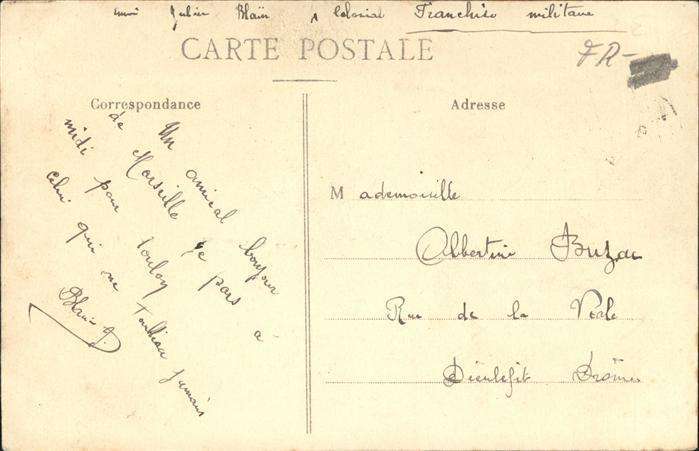 envoi Julien Blain Colonial Franchise militaire
CARTE POSTALE
FR-
Correspondance
Adresse
Un amical bonjour
de Marseille Je pars a
midi pour Toulon
Celui qui ne t'oubliera jamais
Blain J.
Mademoiselle
Albertine Buzac
Rue de la Viale
Dieulefit Drôme